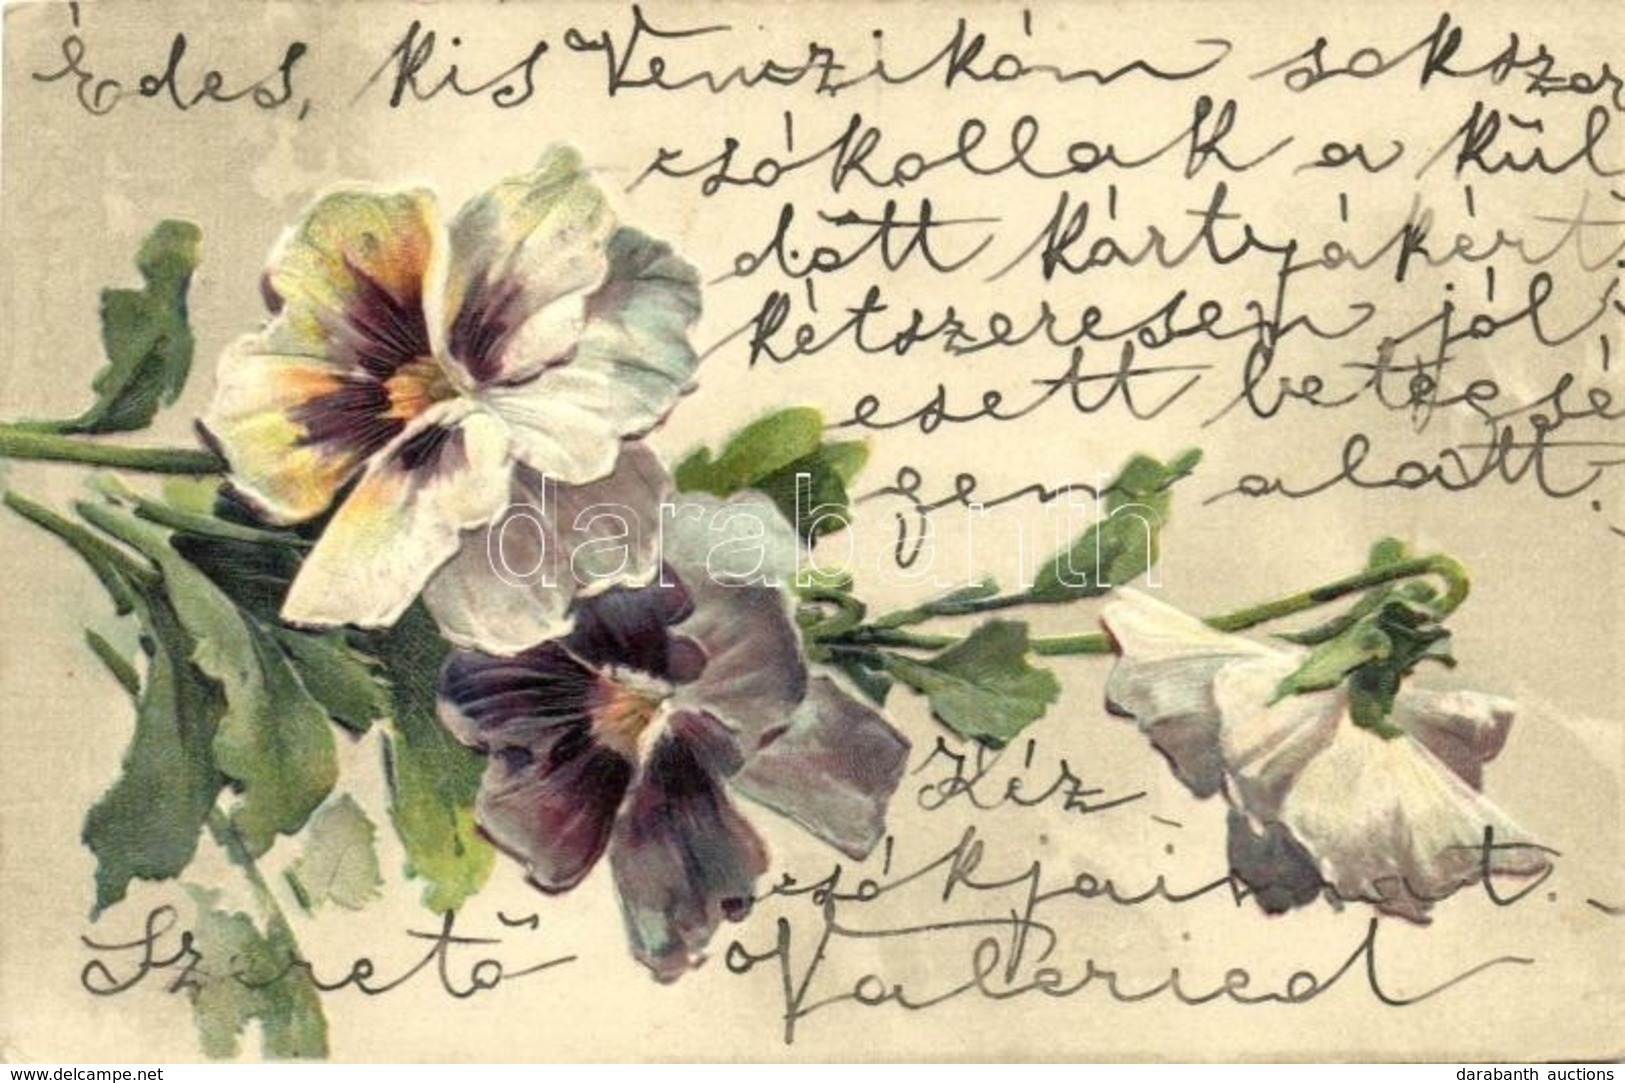 Édes, kis Venczikám sokszor
csókollak a kül
dött kártyákért.
kétszeresen jól
esett betegsé
gem alatt.
darabanth
Kéz
csókjaimat.
Szerető Valeried
www.delcampe.net darabanth auctions